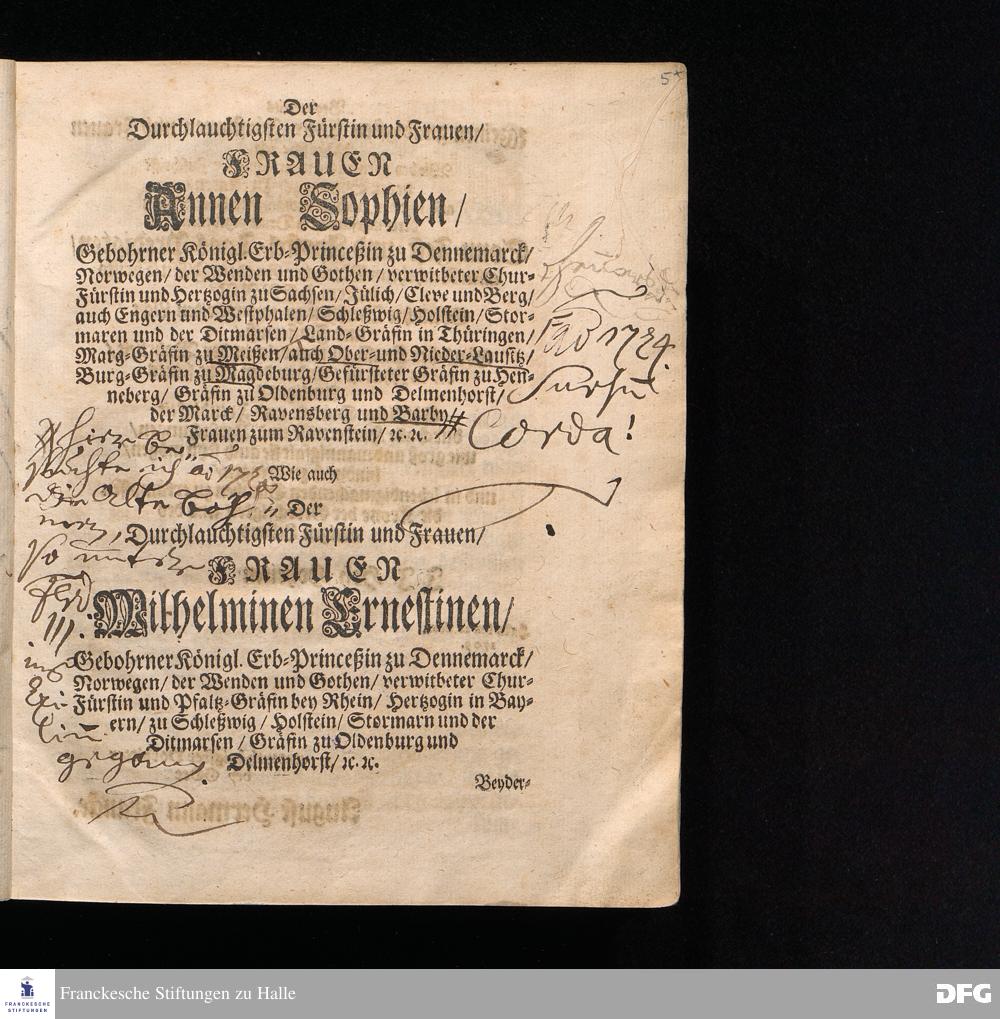 5*
Der
Durchlauchtigsten Fürstin und Frauen/
FRAUEN
Annen Sophien/
Gebohrner Königl. Erb-Princeßin zu Dennemarck/
Norwegen/ der Wenden und Gothen/ verwitbeter Chur-
Fürstin und Hertzogin zu Sachsen/ Jülich/ Cleve und Berg/
auch Engern und Westphalen/ Schleßwig/ Holstein/ Stor-
maren und der Ditmarsen/ Land-Gräfin in Thüringen/
Marg-Gräfin zu Meißen/ auch Ober- und Nieder-Lausitz/
Burg-Gräfin zu Magdeburg/ Gefürsteter Gräfin zu Hen-
neberg/ Gräfin zu Oldenburg und Delmenhorst/
der Marck/ Ravensberg und Barby/
Frauen zum Ravenstein/ ꝛc. ꝛc.
1724
Corda!
Wie auch
Der
Durchlauchtigsten Fürstin und Frauen/
FRAUEN
Wilhelminen Ernestinen/
Gebohrner Königl. Erb-Princeßin zu Dennemarck/
Norwegen/ der Wenden und Gothen/ verwitbeter Chur-
Fürstin und Pfaltz-Gräfin bey Rhein/ Hertzogin in Bay-
ern/ zu Schleßwig/ Holstein/ Stormarn und der
Ditmarsen/ Gräfin zu Oldenburg und
Delmenhorst/ ꝛc. ꝛc.
Beyder-
hierze be-
suchte ich
die alte Böh-
gegang
FRANCKESCHE
STIFTUNGEN
Franckesche Stiftungen zu Halle
DFG